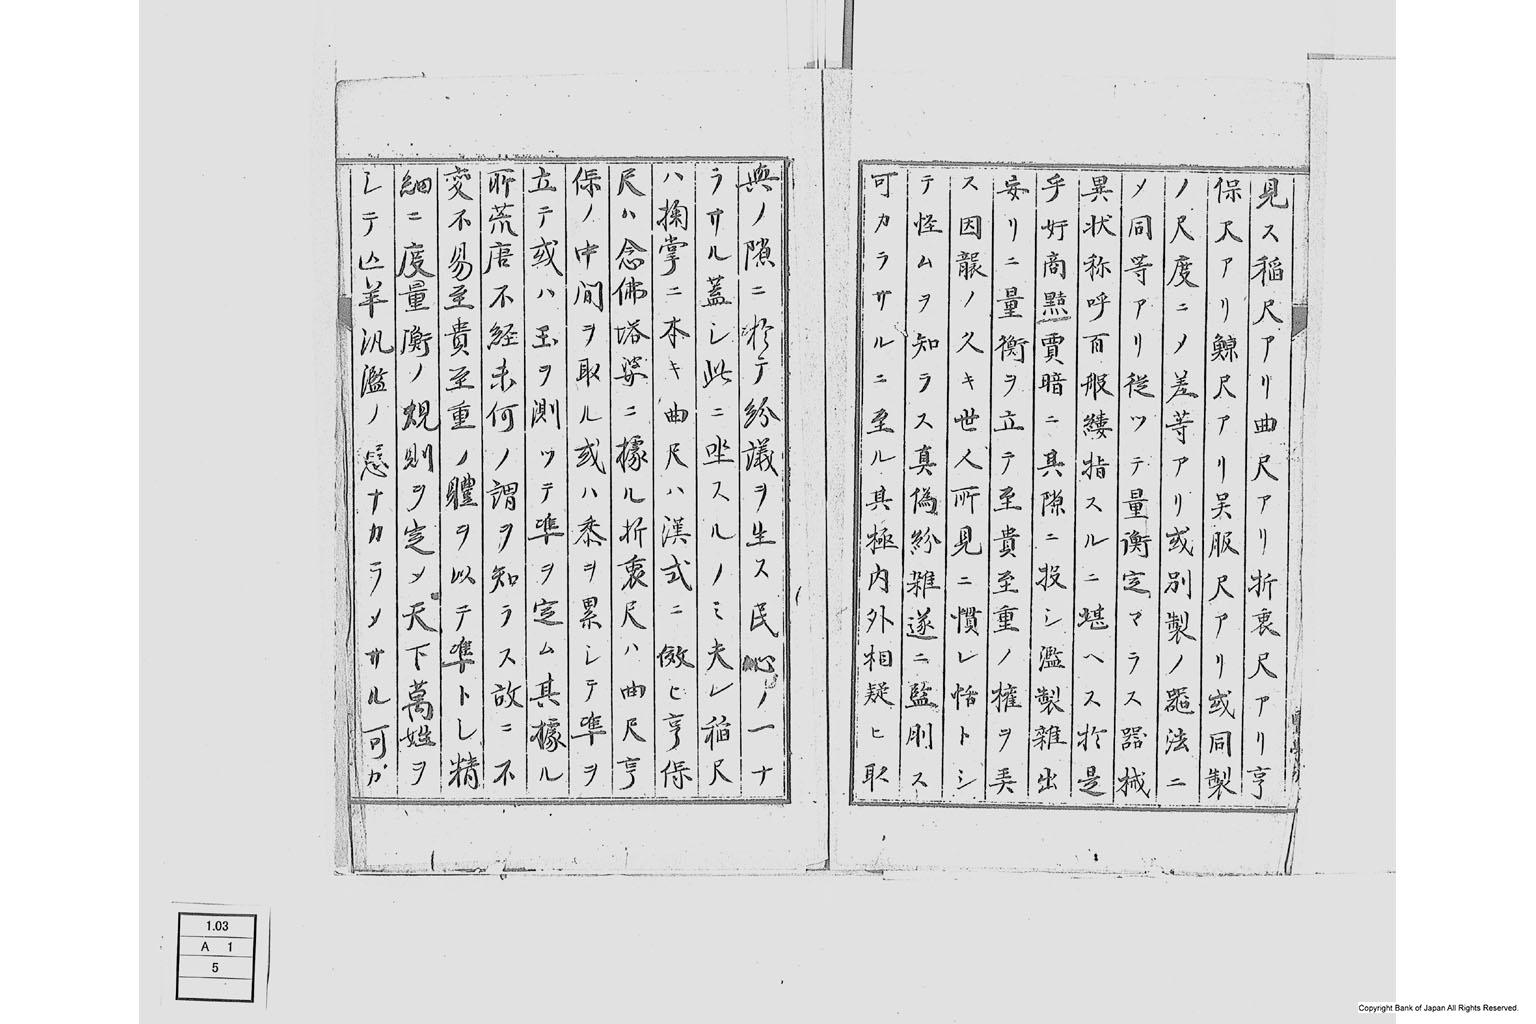 見ス稲尺アリ曲尺アリ折衷尺アリ亨
保尺アリ鯨尺アリ呉服尺アリ或同製
ノ尺度ニノ差等アリ或別製ノ噐法ニ
メ同等アリ従ツテ量衡定マラス器械
異状称呼百般縷指スルニ堪ヘス於是
乎奸商黠賈暗ニ其隙ニ投シ濫製雑出
妄リニ量衡ヲ立テ至貴至重ノ権ヲ弄
ス因襲ノ久キ世人所見ニ慣レ恬トシ
テ怪ムヲ知ラス真偽紛雑遂ニ監刑ス
可カラサルニ至ル其極内外相疑ヒ取
與ノ隙ニ於テ紛議ヲ生ス民心ノ一ナ
ラサル蓋シ此ニ坐スルノミ夫レ稲尺
ハ掬掌ニ本キ曲尺ハ漢式ニ倣ヒ亨保
尺ハ念佛塔婆ニ據ル折衷尺ハ曲尺亨
保ノ中間ヲ取ル或ハ黍ヲ累シテ準ヲ
立テ或ハ玉ヲ測ツテ準ヲ定ム其據ル
所荒唐不経未何ノ謂ヲ知ラス故ニ不
変不易至貴至重ノ體ヲ以テ準トシ精
細ニ度量衡ノ規則ヲ定メ天下萬姓ヲ
シテ亡羊汎濫ノ患ナカラメサル可カ
1.03
A 1
5
Copyright Bank of Japan All Rights Reserved.